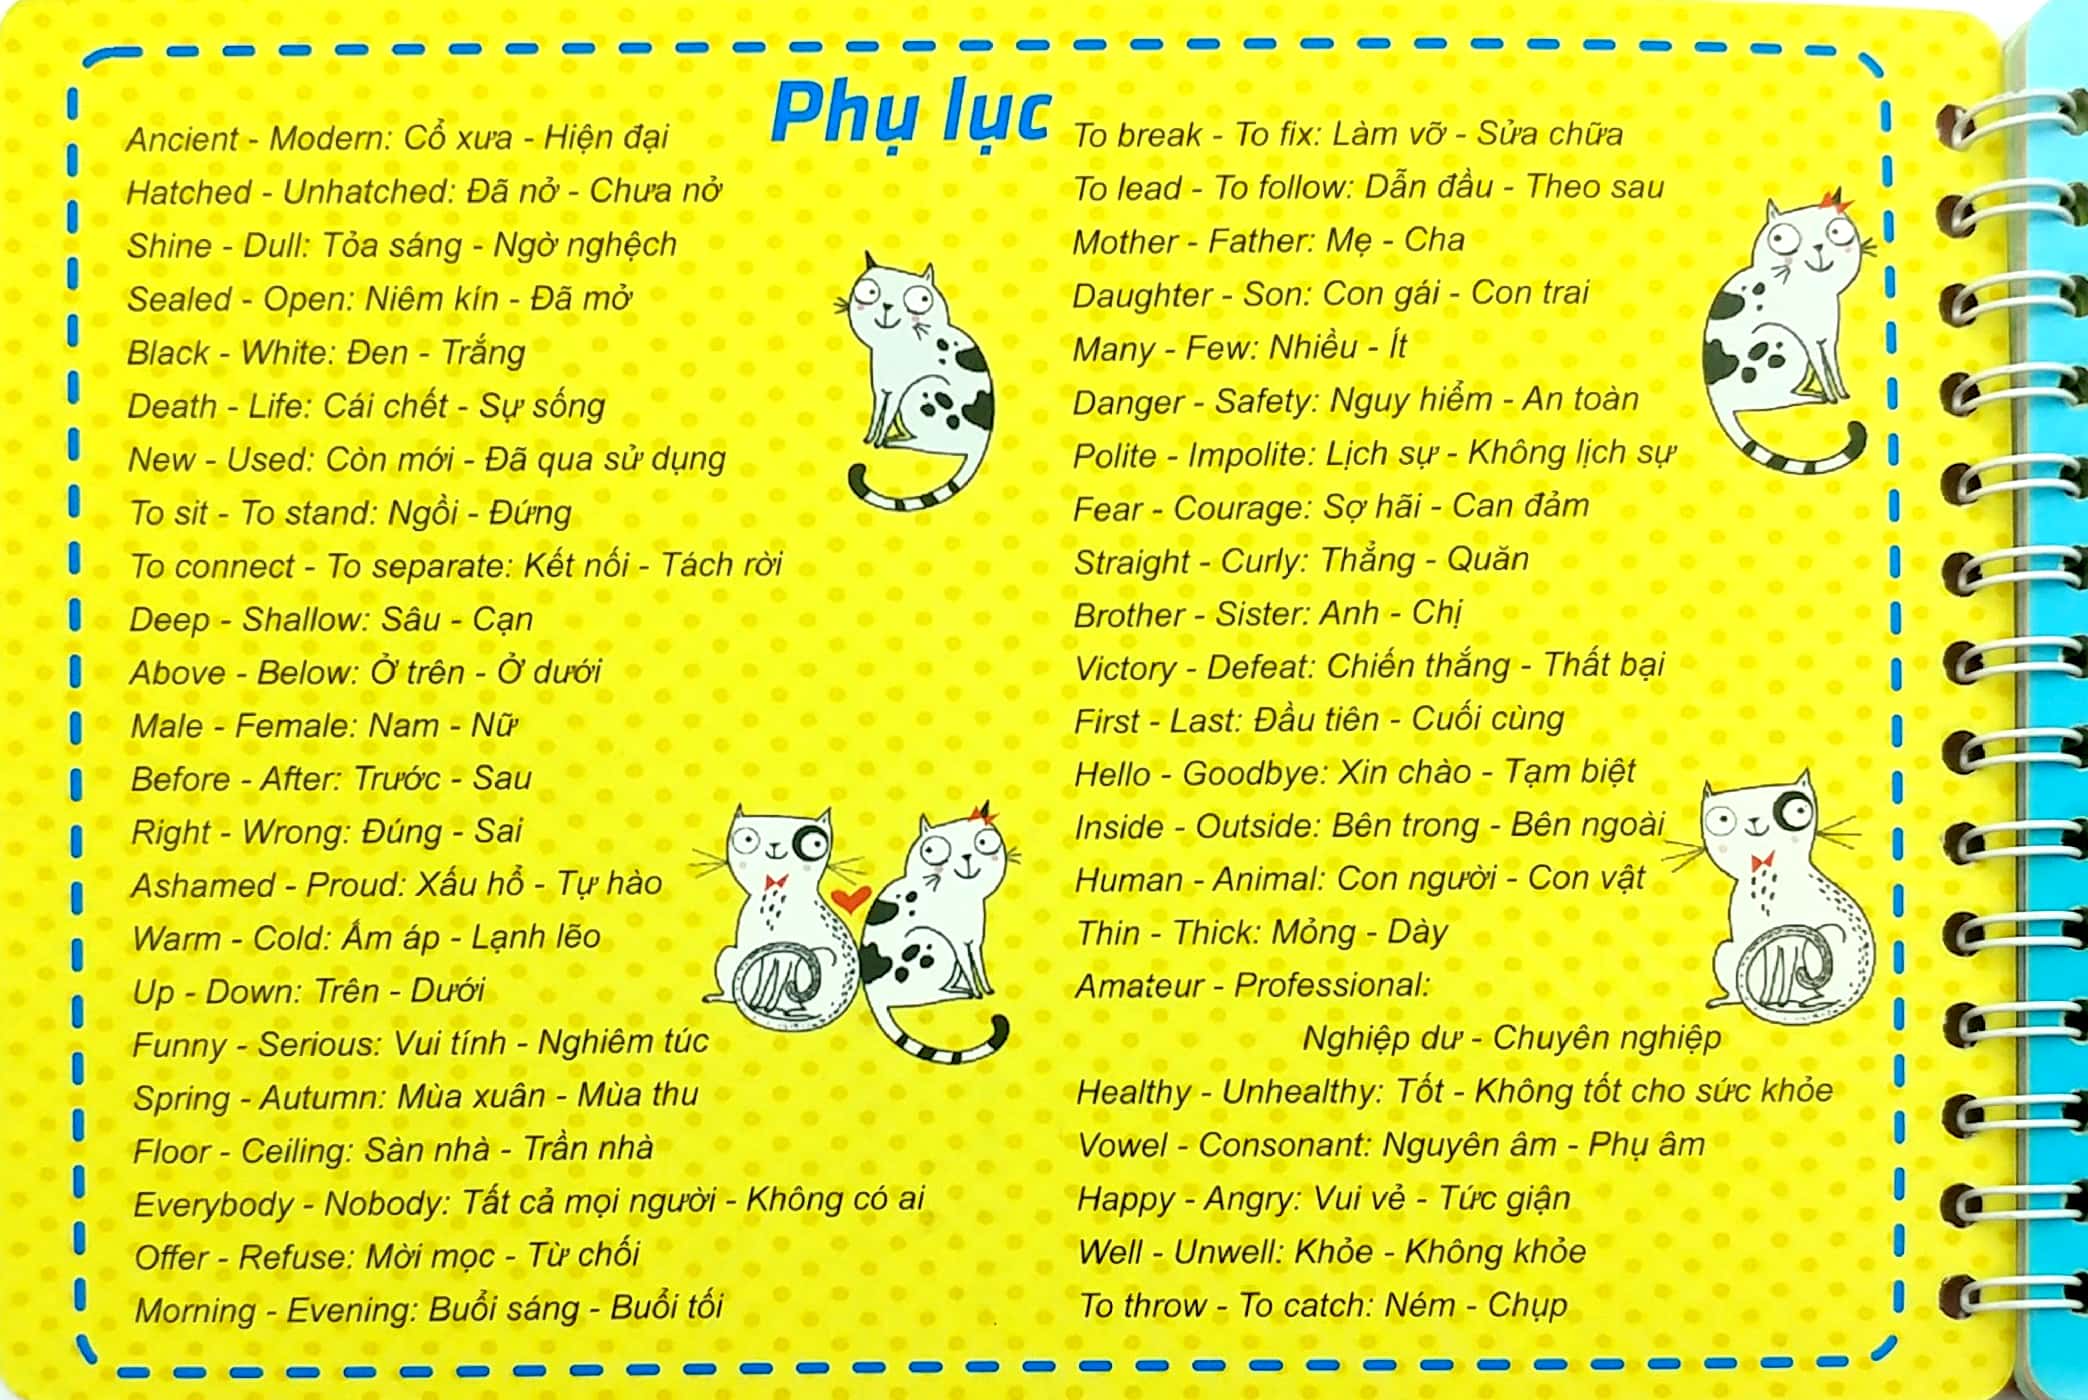 Phụ lục
Ancient - Modern: Cổ xưa - Hiện đại
Hatched - Unhatched: Đã nở - Chưa nở
Shine - Dull: Tỏa sáng - Ngờ nghệch
Sealed - Open: Niêm kín - Đã mở
Black - White: Đen - Trắng
Death - Life: Cái chết - Sự sống
New - Used: Còn mới - Đã qua sử dụng
To sit - To stand: Ngồi - Đứng
To connect - To separate: Kết nối - Tách rời
Deep - Shallow: Sâu - Cạn
Above - Below: Ở trên - Ở dưới
Male - Female: Nam - Nữ
Before - After: Trước - Sau
Right - Wrong: Đúng - Sai
Ashamed - Proud: Xấu hổ - Tự hào
Warm - Cold: Ấm áp - Lạnh lẽo
Up - Down: Trên - Dưới
Funny - Serious: Vui tính - Nghiêm túc
Spring - Autumn: Mùa xuân - Mùa thu
Floor - Ceiling: Sàn nhà - Trần nhà
Everybody - Nobody: Tất cả mọi người - Không có ai
Offer - Refuse: Mời mọc - Từ chối
Morning - Evening: Buổi sáng - Buổi tối
To break - To fix: Làm vỡ - Sửa chữa
To lead - To follow: Dẫn đầu - Theo sau
Mother - Father: Mẹ - Cha
Daughter - Son: Con gái - Con trai
Many - Few: Nhiều - Ít
Danger - Safety: Nguy hiểm - An toàn
Polite - Impolite: Lịch sự - Không lịch sự
Fear - Courage: Sợ hãi - Can đảm
Straight - Curly: Thẳng - Quăn
Brother - Sister: Anh - Chị
Victory - Defeat: Chiến thắng - Thất bại
First - Last: Đầu tiên - Cuối cùng
Hello - Goodbye: Xin chào - Tạm biệt
Inside - Outside: Bên trong - Bên ngoài
Human - Animal: Con người - Con vật
Thin - Thick: Mỏng - Dày
Amateur - Professional:
Nghiệp dư - Chuyên nghiệp
Healthy - Unhealthy: Tốt - Không tốt cho sức khỏe
Vowel - Consonant: Nguyên âm - Phụ âm
Happy - Angry: Vui vẻ - Tức giận
Well - Unwell: Khỏe - Không khỏe
To throw - To catch: Ném - Chụp